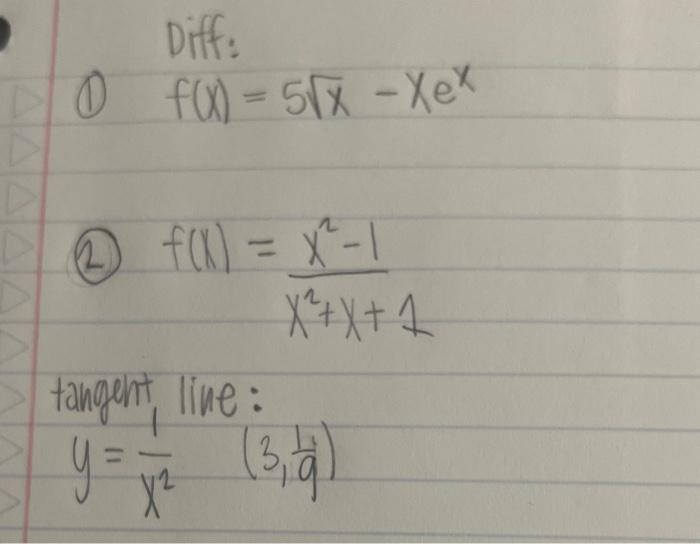 Diff:
① f(x) = 5√x - xeˣ
② f(x) = x² - 1
x² + x + 1
tangent line:
y = 1/x² (3, 1/9)